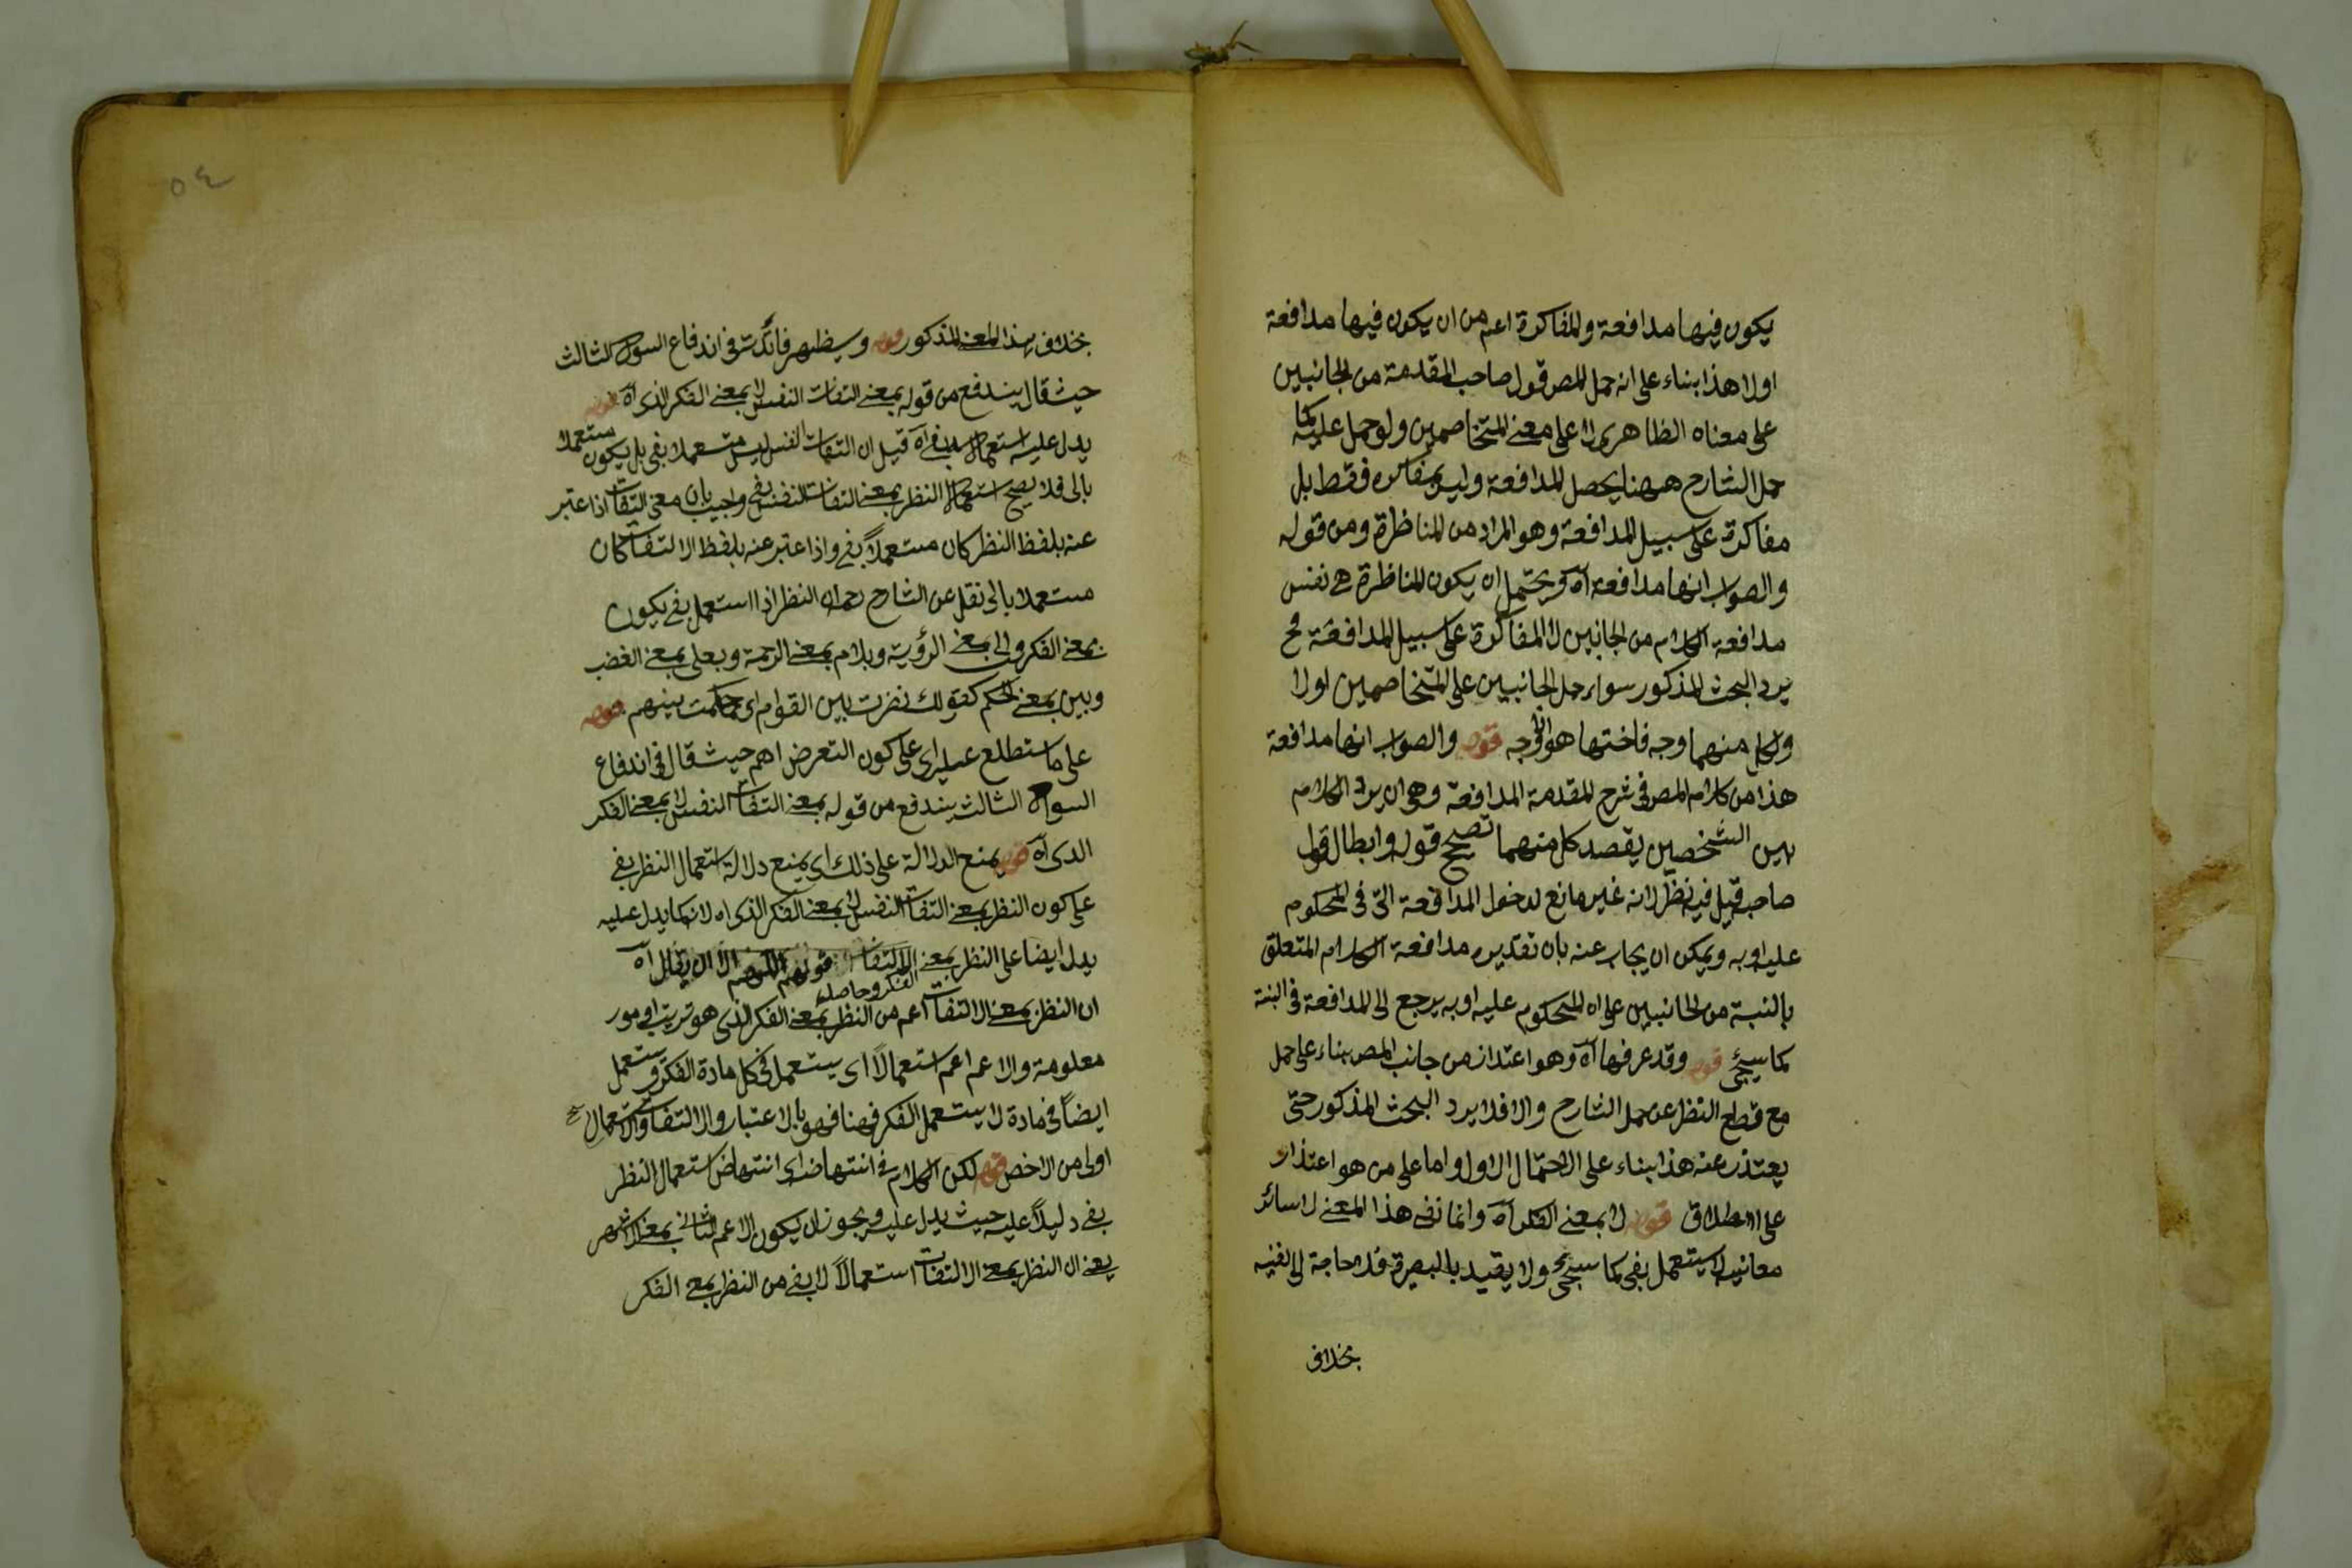 يكون فيها مدافعة والمفاكرة اعم من ان يكون فيها مدافعة
اولا هذا بناء على انه حمل المصر قول صاحب المقدمة من الجانبين
على معناه الظاهرى لا على معنى المتخاصمين ولو حمل عليه كما
حمل الشارح ههنا يحصل المدافعة وليس مفاكرة فقط بل
مفاكرة على سبيل المدافعة وهو المراد من المناظرة ومن قوله
والصواب انها مدافعة آه ويحتمل ان يكون المناظرة هى نفس
مدافعة الكلام من الجانبين لا المفاكرة على سبيل المدافعة فح
يرد البحث المذكور سواء حمل الجانبين على المتخاصمين اولا
ولكل منهما وجه فاختها هو الاوجه قوله والصواب انها مدافعة
هذا من كلام المصر فى شرح المقدمة المدافعة وهى ان يرد الكلام
بين الشخصين يقصد كل منهما تصحيح قوله وابطال قول
صاحبه قيل فيه نظر لانه غير مانع لدخول المدافعة التى فى المحكوم
عليه او به ويمكن ان يجاب عنه بان تقديره مدافعة الكلام المتعلق
بالنسبة من الجانبين على ان المحكوم عليه او به يرجع الى المدافعة فى النسبة
كما سيجئ قوله وقد عرفها آه وهو اعتذار من جانب المصر بناء على حمل
مع قطع النظر عن حمل الشارح والا فلا يرد البحث المذكور حتى
يعتذر عنه هذا بناء على الاحتمال الاول واما على من هو اعتذار
على الاطلاق قوله لا بمعنى الفكر آه وانما نفى هذا المعنى لا سائر
معانيه لا يستعمل بفى كما سيجئ ولا يقيد بالبصيرة فلا حاجة الى نفيه
بخلاف
بخلاف هذا المعنى المذكور قوله وسيظهر فائدته فى اندفاع السؤال الثالث
حيث قال يندفع من قوله بمعنى التفات النفس لا بمعنى الفكر الذى آه قوله
يدل عليه استعماله بفى آه قيل ان التفات النفس ليس مستعملا بفى بل يكون مستعملا
بالى فلا يصح استعمال النظر بمعنى التفات النفس بفى واجيب بان معنى التفات اذا عتبر
عنه بلفظ النظر كان مستعملاً بفى واذا عتبر عنه بلفظ الالتفات كان
مستعملا بالى نقل عن الشارح رحمه الله النظر اذا استعمل بفى يكون
بمعنى الفكر والى بمعنى الرؤية وبلام بمعنى الرحمة وبعلى بمعنى الغضب
وبين بمعنى الحكم كقولك نضرت بين القوام اى حاكمت بينهم قوله
على ما ستطلع عليه اى على كون التعرض اهم حيث قال فى اندفاع
السوال الثالث يندفع من قوله بمعنى التفات النفس لا بمعنى الفكر
الذى آه قوله يمنع الدلالة على ذلك اى يمنع دلالة استعمال النظر بفى
على كون النظر بمعنى التفات النفس لا بمعنى الفكر الذى اه لانه كما يدل عليه
يدل ايضا على النظر بمعنى الفكر وحاصله
ان النظر بمعنى الالتفات اعم من النظر بمعنى الفكر الذى هو ترتيب امور
معلومة والاعم اعم استعمالاً اى يستعمل فى كل مادة الفكر ويستعمل
ايضاً فى مادة لا يستعمل الفكر فهنا فهو بالاعتبار والالتفات والاستعمال
اولى من الاخص قوله لكن الكلام فى انتهاضه اى انتهاض استعمال النظر
بفى دليلاً عليه حيث يدل عليه ويجوز ان يكون الاعم الثانى بمعنى الاشهر
يعنى ان النظر بمعنى الالتفات استعمالاً لا بفى من النظر بمعنى الفكر
٥٤